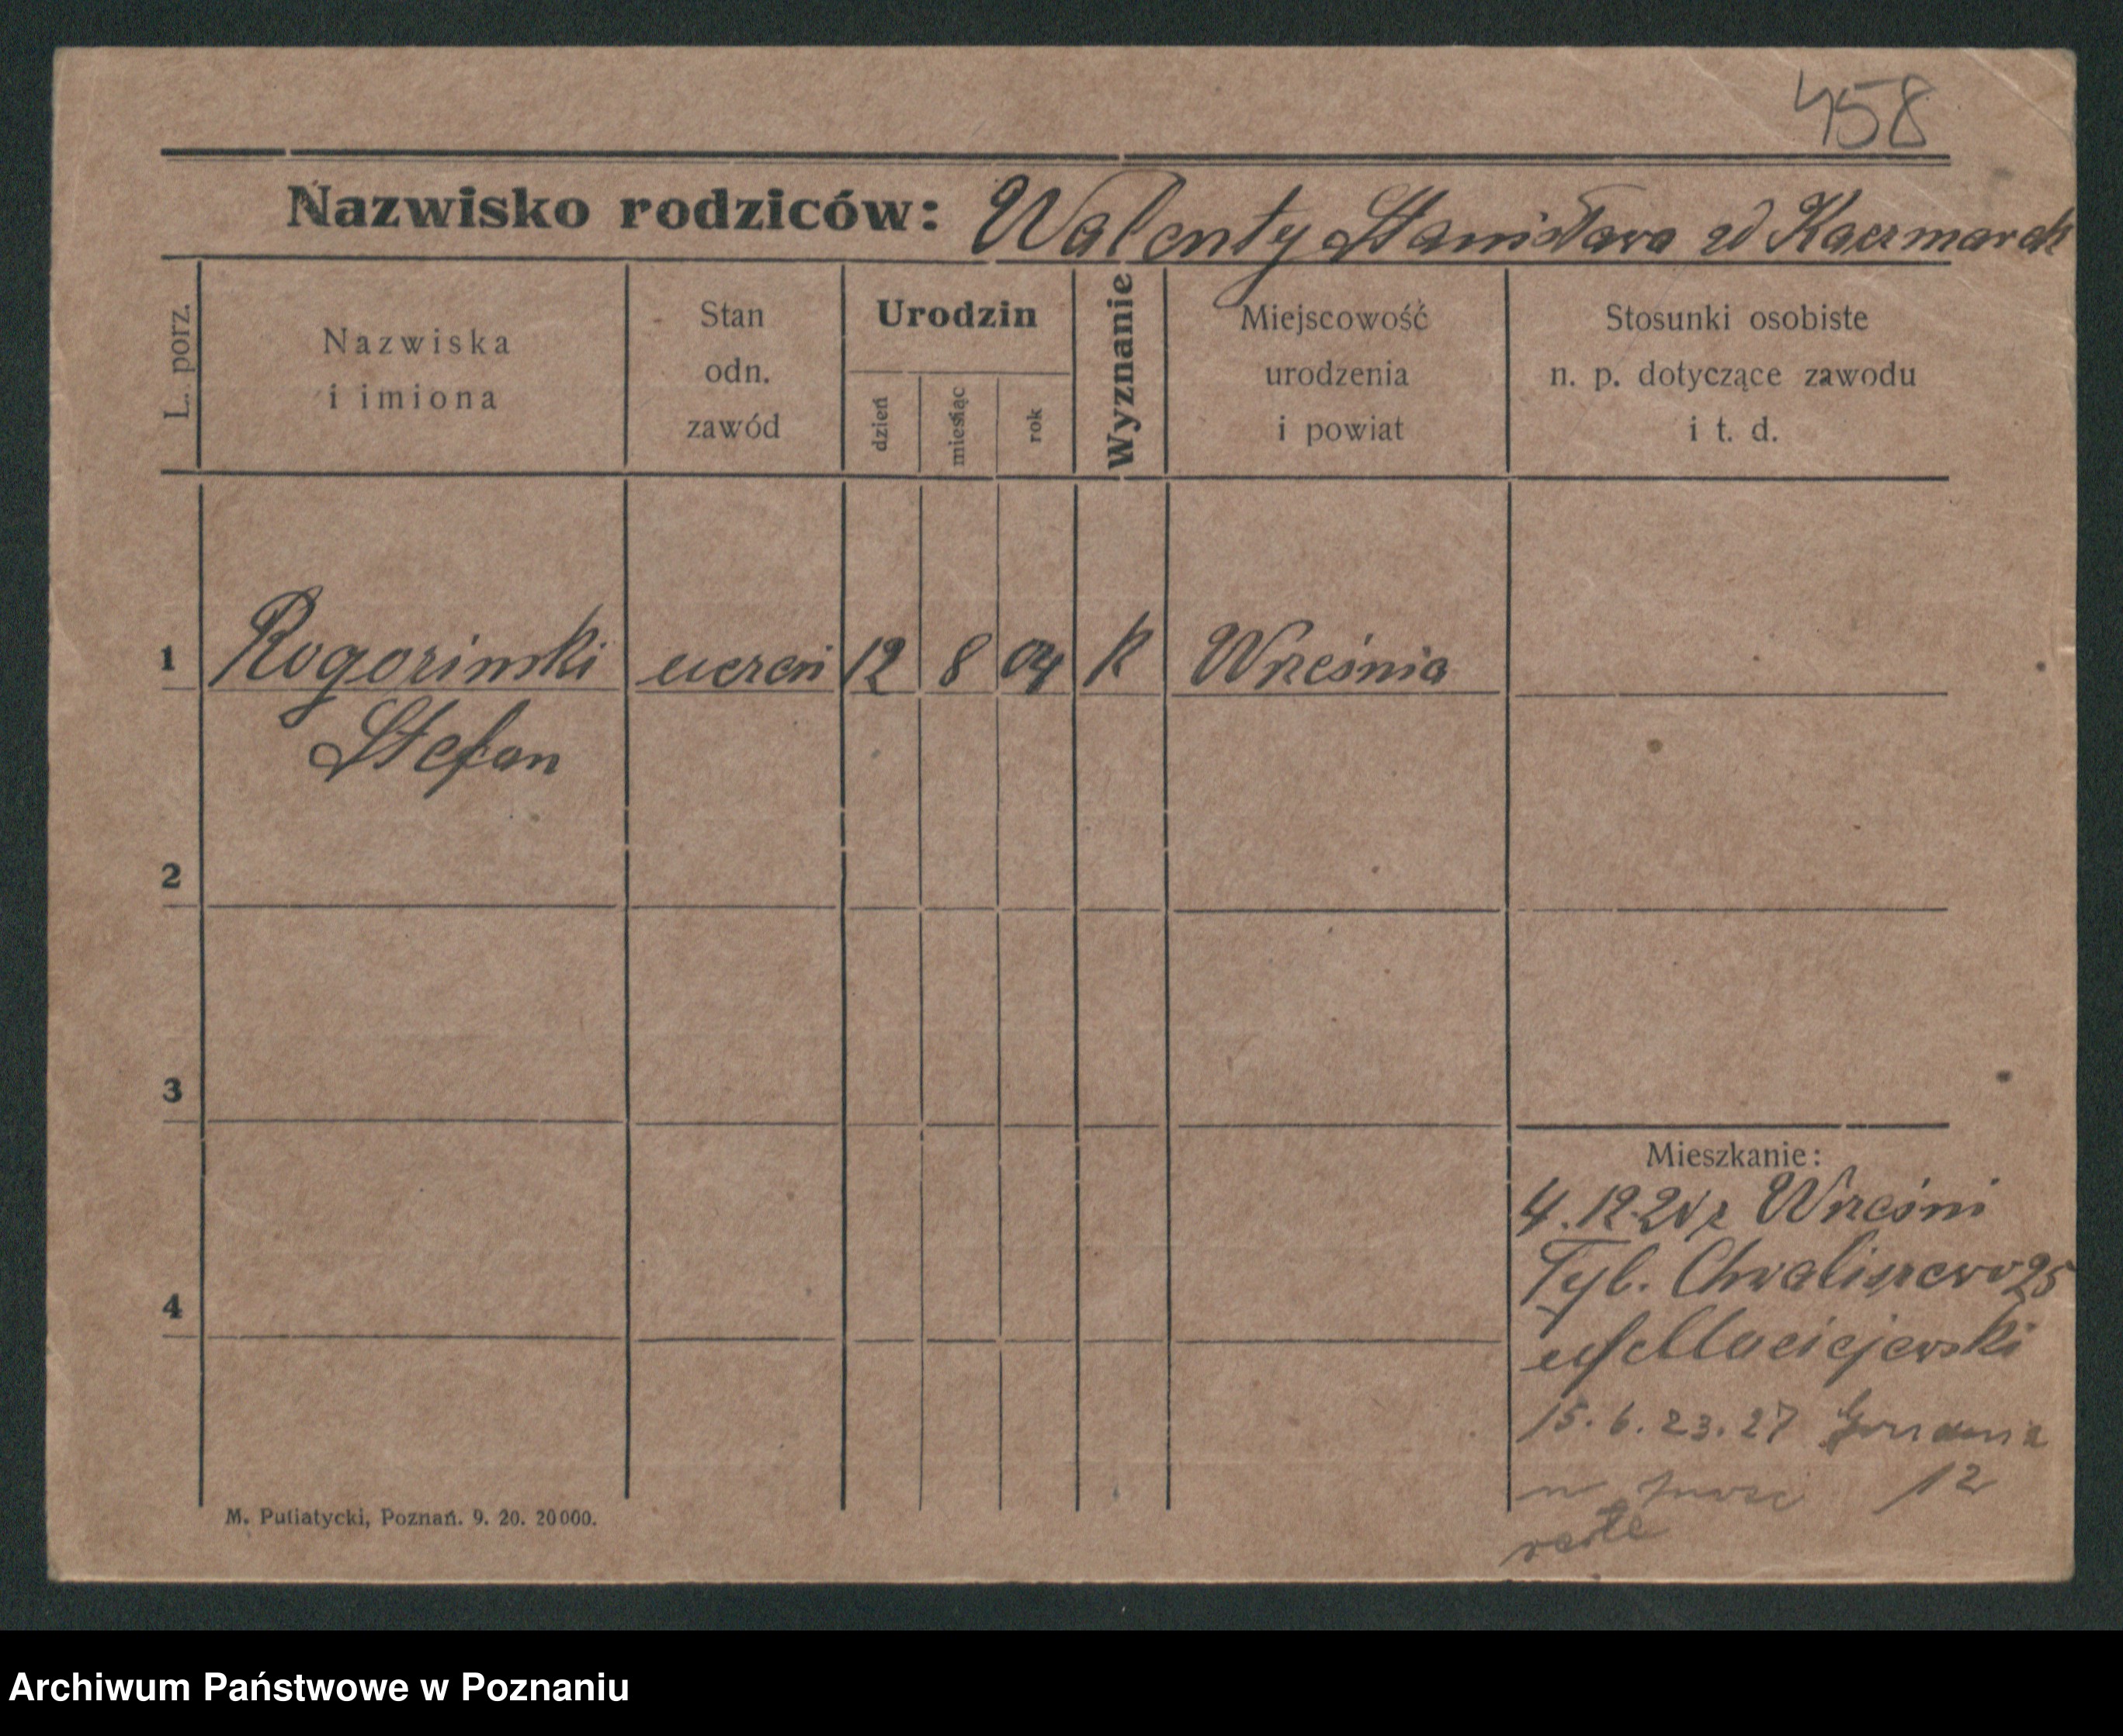 458
Nazwisko rodziców: Walenty Stanisława zd Kaczmarek
L. porz.
Nazwiska
i imiona
Stan
odn.
zawód
Urodzin
dzień
miesiąc
rok
Wyznanie
Miejscowość
urodzenia
i powiat
Stosunki osobiste
n. p. dotyczące zawodu
i t. d.
1 Rogozinski uczeń 12 8 04 K Września
Stefan
2
3
Mieszkanie:
4.12.21 z Wrześni
4
Tyl. Chwaliszewo 25
Maciejewski
15.6.23.27
12
M. Putiatycki, Poznań. 9. 20. 20000.
Archiwum Państwowe w Poznaniu